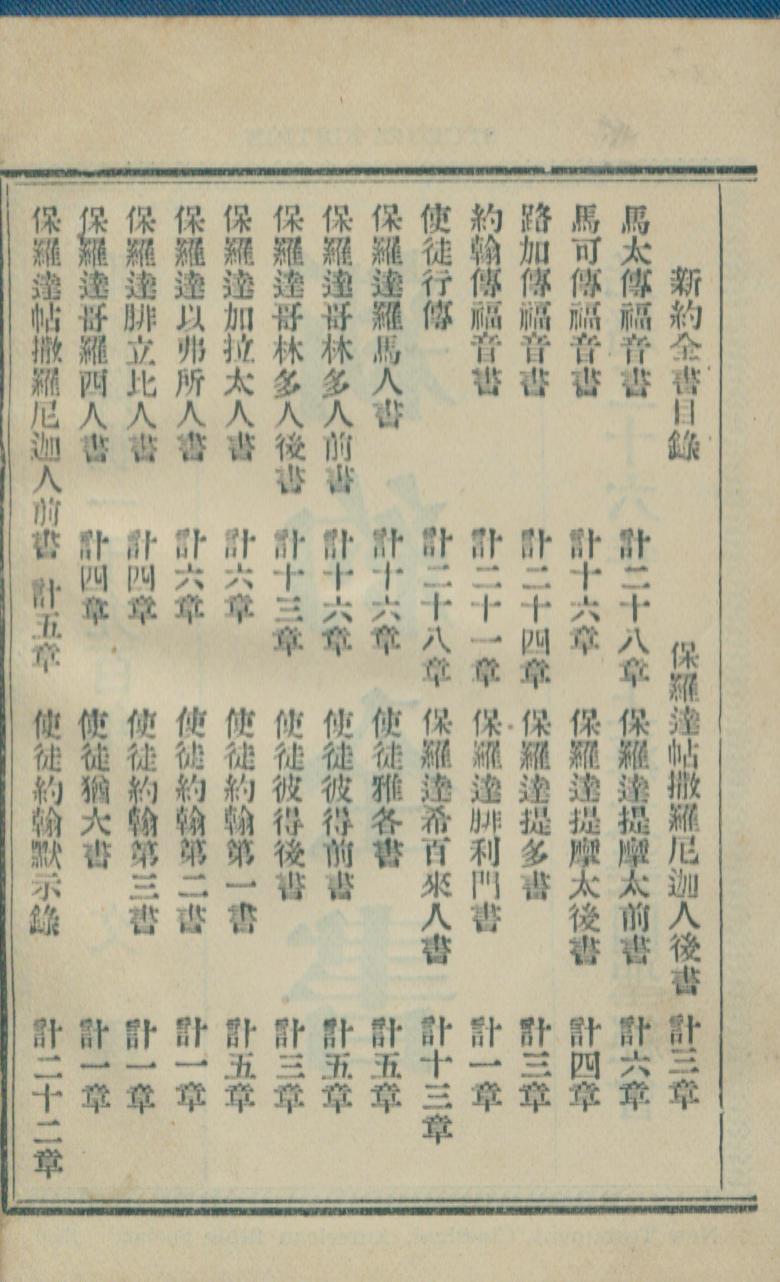 新約全書目錄
馬太傳福音書 計二十八章
馬可傳福音書 計十六章
路加傳福音書 計二十四章
約翰傳福音書 計二十一章
使徒行傳 計二十八章
保羅達羅馬人書 計十六章
保羅達哥林多人前書 計十六章
保羅達哥林多人後書 計十三章
保羅達加拉太人書 計六章
保羅達以弗所人書 計六章
保羅達腓立比人書 計四章
保羅達哥羅西人書 計四章
保羅達帖撒羅尼迦人前書 計五章
保羅達帖撒羅尼迦人後書 計三章
保羅達提摩太前書 計六章
保羅達提摩太後書 計四章
保羅達提多書 計三章
保羅達腓利門書 計一章
保羅達希百來人書 計十三章
使徒雅各書 計五章
使徒彼得前書 計五章
使徒彼得後書 計三章
使徒約翰第一書 計五章
使徒約翰第二書 計一章
使徒約翰第三書 計一章
使徒猶大書 計一章
使徒約翰默示錄 計二十二章